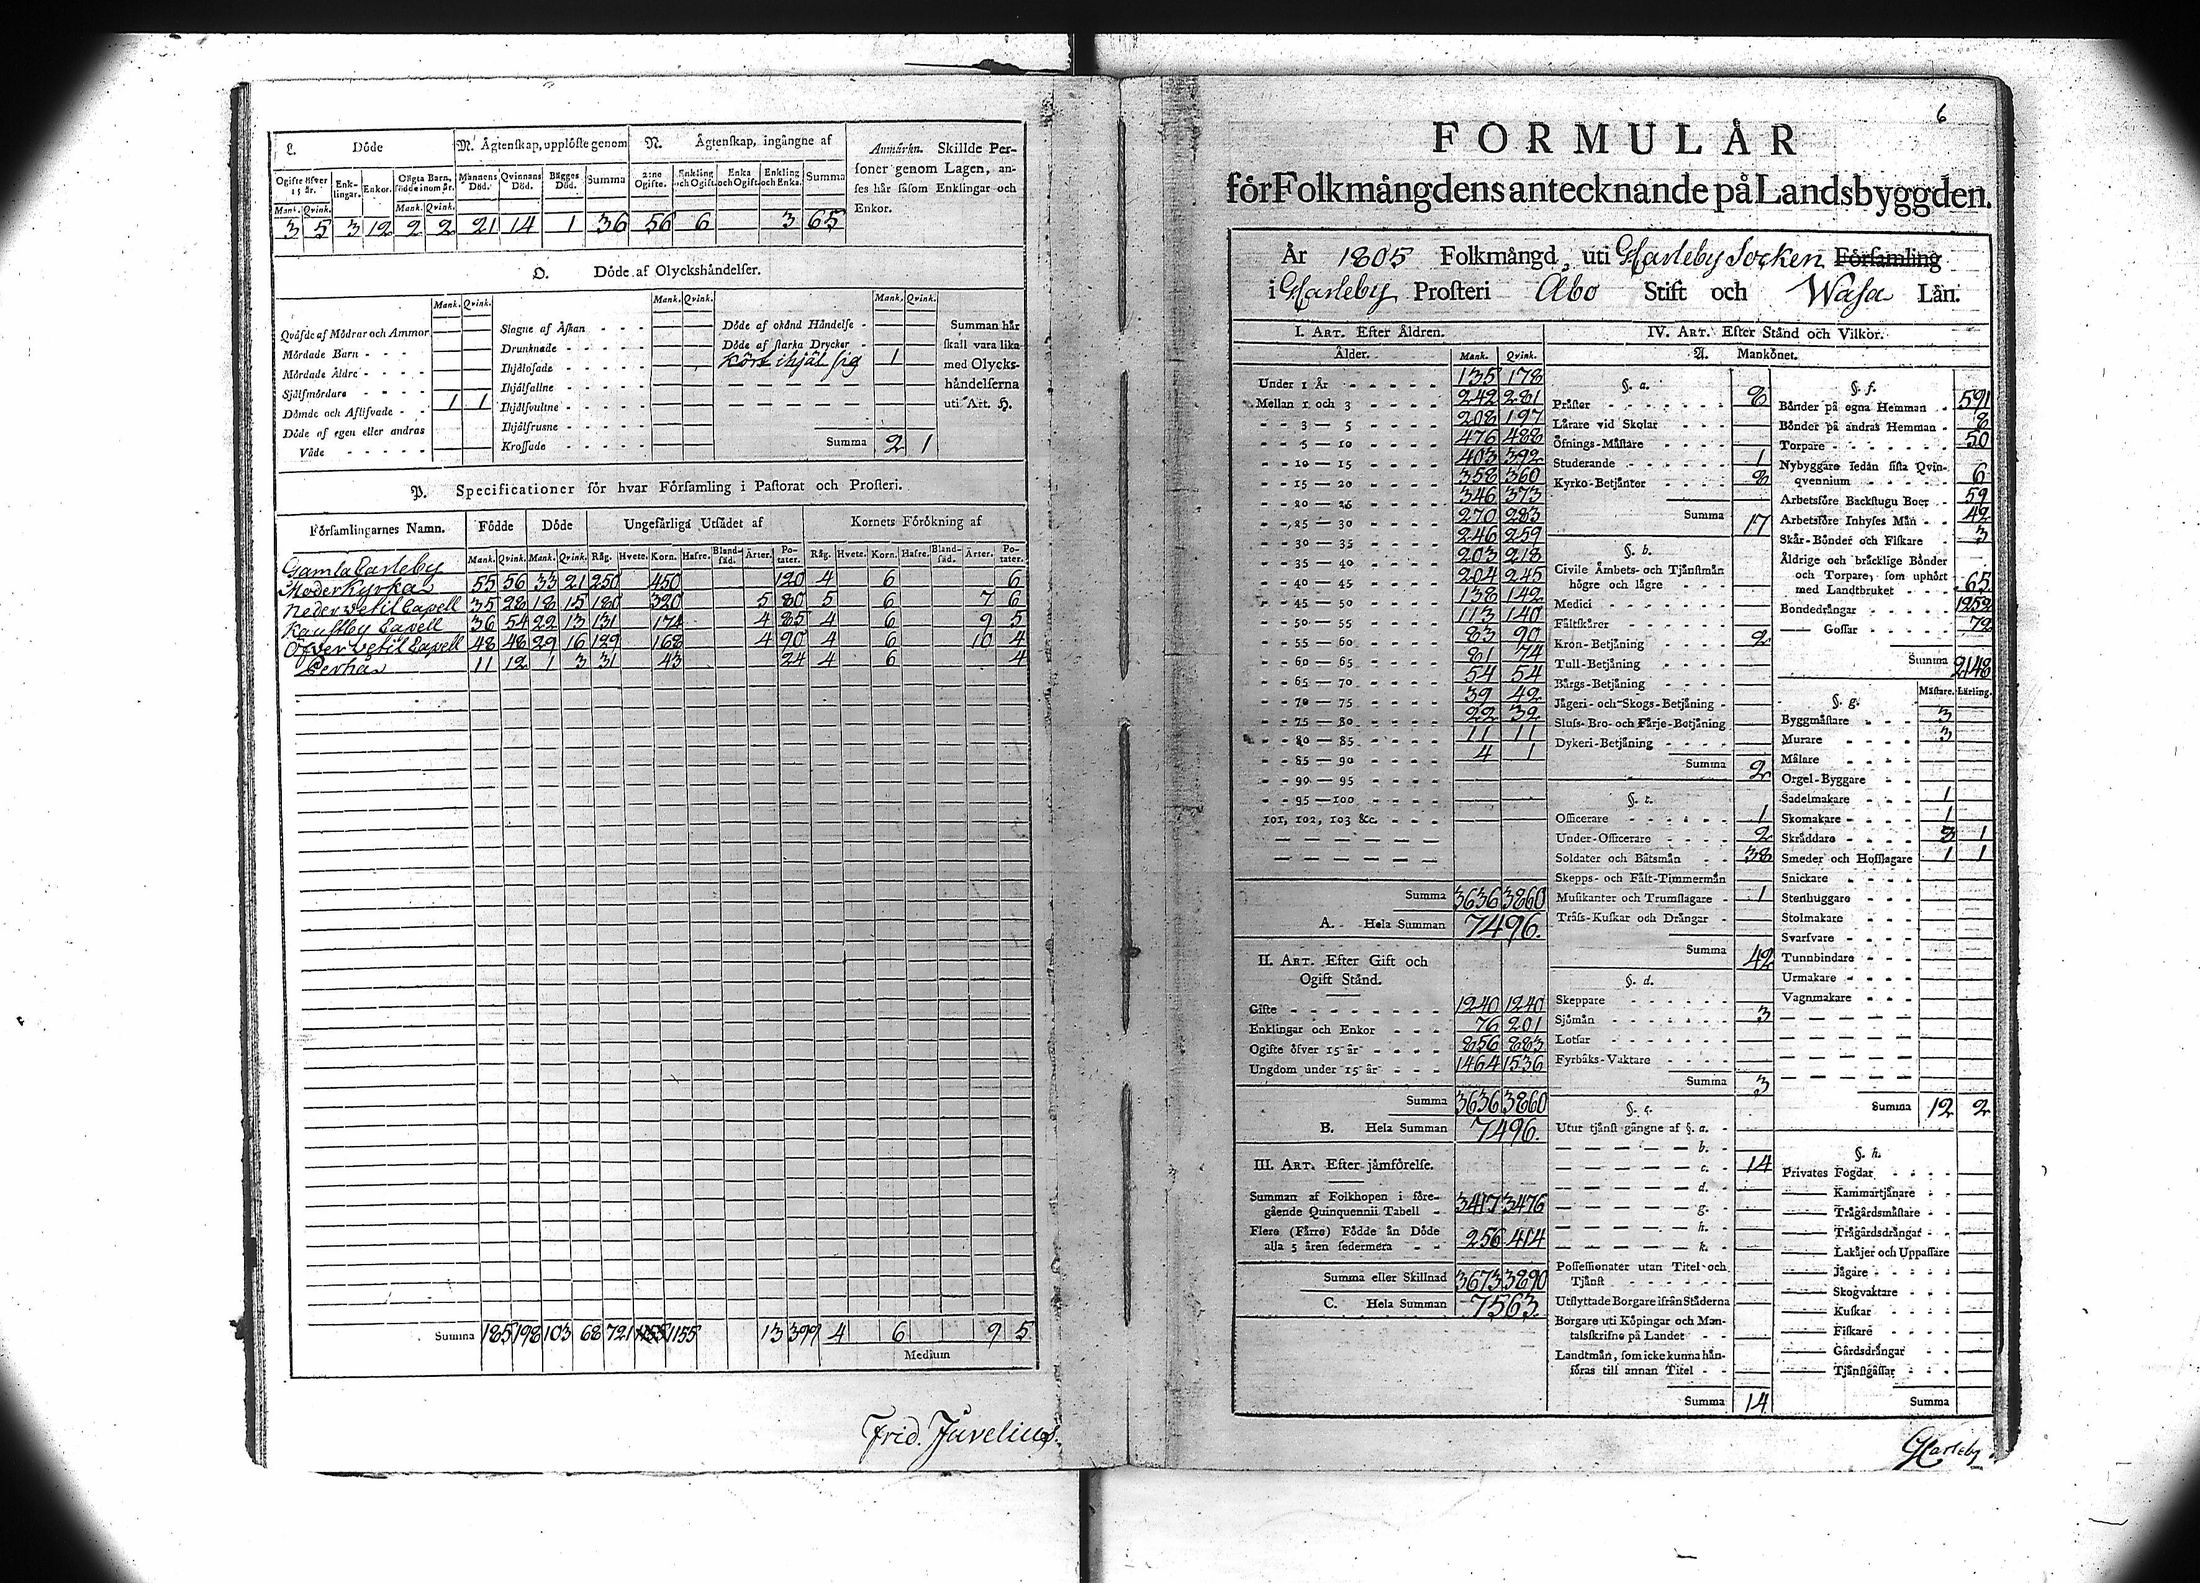 L. Döde
M. Ågtenskap, upplöste genom
N. Ågtenskap, ingångne af
Anmärkn. Skillde Personer genom Lagen, anses här såsom Enklingar och Enkor.
Ogifte öfver 15 år. Enklingar. Enkor. Oägta Barn, födde inom år. Mannens Död. Qvinnans Död. Bägges Död. Summa 2:ne Ogifte. Enkling och Ogift. Enka och Ogift. Enkling och Enka. Summa
Mank. Qvink. Mank. Qvink.
3 5 3 12 2 2 21 14 1 36 56 6 3 65
O. Döde af Olyckshändelser.
Mank. Qvink. Mank. Qvink. Mank. Qvink.
Qväfde af Mödrar och Ammor
Mördade Barn - - -
Mördade Äldre - - - -
Självmördare - - - -
Dömde och Aflifvade - - 1 1
Döde af egen eller andras
Våde - - - - -
Slagne af Åskan - - -
Drunknade - - - - -
Ihjälosade - - - -
Ihjälfallne - - - -
Ihjälsvultne - - - -
Ihjälfrusne - - - -
Krossade - - - -
Döde af okänd Händelse -
Döde af starka Drycker -
Kört ihjäl sig 1
Summa 2 1
Summan här
skall vara lika
med Olycks-
händelserna
uti Art. H.
P. Specificationer för hvar Församling i Pastorat och Prosteri.
Församlingarnes Namn. Födde Döde Ungefärliga Utsädet af Kornets Förökning af
Mank. Qvink. Mank. Qvink. Råg. Hvete. Korn. Hafre. Blandsäd. Ärter. Potater. Råg. Hvete. Korn. Hafre. Blandsäd. Ärter. Potater.
Gamla Carleby
Moderkyrka 55 56 33 21 250 450 120 4 6 6
Nedervetil Capell 35 28 18 15 180 320 5 80 5 6 7 6
Kaustby Capell 36 54 22 13 131 174 4 85 4 6 9 5
Öfvervetil Capell 48 48 29 16 129 168 4 90 4 6 10 4
Perho 11 12 1 3 31 43 24 4 6 4
Summa 185 198 103 68 721 1155 1155 13 399 4 6 9 5
Medium
Frid. Juvelius.
6
FORMULÄR
för Folkmängdens antecknande på Landsbyggden.
År 1805 Folkmängd, uti GCarleby Socken Församling
i GCarleby Prosteri Åbo Stift och Wasa Län.
I. Art. Efter Åldren.
Ålder. Mank. Qvink.
Under 1 År - - - - - 135 178
Mellan 1 och 3 - - - - 242 281
- - 3 — 5 - - - - 208 197
- - 5 — 10 - - - - 476 488
- - 10 — 15 - - - - 403 392
- - 15 — 20 - - - - 358 360
- - 20 — 25 - - - - 346 373
- - 25 — 30 - - - - 270 283
- - 30 — 35 - - - - 246 259
- - 35 — 40 - - - - 203 218
- - 40 — 45 - - - - 204 245
- - 45 — 50 - - - - 138 142
- - 50 — 55 - - - - 113 140
- - 55 — 60 - - - - 83 90
- - 60 — 65 - - - - 81 74
- - 65 — 70 - - - - 54 54
- - 70 — 75 - - - - 39 42
- - 75 — 80 - - - - 22 32
- - 80 — 85 - - - - 11 11
- - 85 — 90 - - - - 4 1
- - 90 — 95 - - - -
- - 95 — 100 - - - -
101, 102, 103 &c. - - -
Summa 3636 3860
A. Hela Summan 7496.
II. Art. Efter Gift och
Ogift Stånd.
Gifte - - - - - - - 1240 1240
Enklingar och Enkor - - - 76 201
Ogifte öfver 15 år - - - - 856 883
Ungdom under 15 år - - - 1464 1536
Summa 3636 3860
B. Hela Summan 7496.
III. Art. Efter jämförelse.
Summan af Folkhopen i före-
gående Quinquennii Tabell - 3417 3476
Flere (Färre) Födde än Döde
alla 5 åren sedermera - - 256 414
Summa eller Skillnad 3673 3890
C. Hela Summan 7563.
IV. Art. Efter Stånd och Vilkor.
A. Mankönet.
§. a.
Präster - - - - - - - 8
Lärare vid Skolar - - -
Öfnings-Mästare - - - -
Studerande - - - - - - 1
Kyrko-Betjänter - - - - 8
Summa 17
§. b.
Civile Ämbets- och Tjänstmän
högre och lägre - - - -
Medici - - - - - -
Fältskärer - - - - -
Kron-Betjäning - - - - 2
Tull-Betjäning - - - -
Bärgs-Betjäning - - - -
Jägeri- och Skogs-Betjäning -
Sluss- Bro- och Färje-Betjäning
Dykeri-Betjäning - - - -
Summa 2
§. c.
Officerare - - - - - - 1
Under-Officerare - - - - 2
Soldater och Båtsmän - - 38
Skepps- och Fält-Timmermän
Musikanter och Trumslagare - 1
Träss-Kuskar och Drängar -
Summa 42
§. d.
Skeppare - - - - - -
Sjömän - - - - - - 3
Lotsar - - - - - -
Fyrbåks-Vaktare - - - -
Summa 3
§. e.
Utur tjänst gångne af §. a. -
— — — — — b. -
— — — — — c. - 14
— — — — — d. -
— — — — — g. -
— — — — — h. -
— — — — — k. -
Possessionater utan Titel och
Tjänst - - - - - -
Utflyttade Borgare ifrån Städerna
Borgare uti Köpingar och Man-
talsskrifne på Landet - -
Landtmän, som icke kunna hän-
föras till annan Titel - -
Summa 14
§. f.
Bönder på egna Hemman - - 591
Bönder på andras Hemman - 8
Torpare - - - - - - 50
Nybyggare sedan sista Qvin-
qvennium - - - - - 6
Arbetsföre Backstugu Boer - 59
Arbetsföre Inhyses Män - - 42
Skär-Bönder och Fiskare - 3
Äldrige och bräcklige Bönder
och Torpare, som uphört
med Landtbruket - - - 65
Bondedrängar - - - - - 1252
—— Gossar - - - - - 72
Summa 2148
§. g. Mästare. Lärling.
Byggmästare - - - 3
Murare - - - - 3
Målare - - - -
Orgel-Byggare - -
Sadelmakare - - - 1
Skomakare - - - - 1
Skräddare - - - - 3 1
Smeder och Hofslagare 1 1
Snickare - - - -
Stenhuggare - - -
Stolmakare - - -
Svarfvare - - - -
Tunnbindare - - -
Urmakare - - - -
Vagnmakare - - -
Summa 12 2
§. h.
Privates Fogdar - - - -
—— Kammartjänare - -
—— Trägårdsmästare - -
—— Trägårdsdrängar - -
—— Lakäjer och Uppassare
—— Jägare - - - - -
—— Skogvaktare - - -
—— Kuskar - - - -
—— Fiskare - - - -
—— Gårdsdrängar - -
—— Tjänstgässar - - -
Summa
GCarleby.